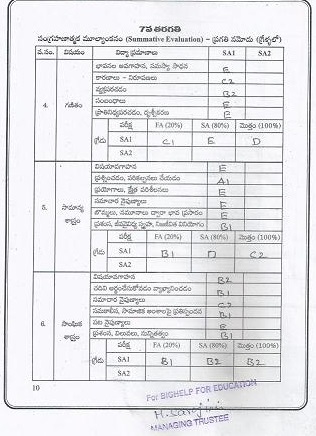 7వ తరగతి
సంగ్రహణాత్మక మూల్యాంకనం (Summative Evaluation) – ప్రగతి నమోదు (గ్రేడ్లలో)
వ.సం. విషయం విద్యా ప్రమాణాలు SA1 SA2
4. గణితం
భావనల అవగాహన, సమస్యా సాధన E
కారణాలు – నిరూపణలు C2
వ్యక్తపరచడం B2
సంబంధాలు E
ప్రాతినిధ్యపరచడం, దృశ్యీకరణ E
గ్రేడు పరీక్ష FA (20%) SA (80%) మొత్తం (100%)
SA1 C1 E D
SA2
5. సామాన్య శాస్త్రం
విషయావగాహన E
ప్రశ్నించడం, పరికల్పనలు చేయడం A1
ప్రయోగాలు, క్షేత్ర పరిశీలనలు E
సమాచార నైపుణ్యాలు E
బొమ్మలు, నమూనాల ద్వారా భావ ప్రసారం E
ప్రశంస, జీవవైవిధ్య స్పృహ, నిజజీవిత వినియోగం B1
గ్రేడు పరీక్ష FA (20%) SA (80%) మొత్తం (100%)
SA1 B1 D C2
SA2
6. సాంఘిక శాస్త్రం
విషయావగాహన B2
చదివి అర్థంచేసుకోవడం వ్యాఖ్యానించడం B1
సమాచార నైపుణ్యాలు C2
సమకాలీన, సామాజిక అంశాలపై ప్రతిస్పందన B1
పట నైపుణ్యాలు E
ప్రశంస, విలువలు, సున్నితత్వం B1
గ్రేడు పరీక్ష FA (20%) SA (80%) మొత్తం (100%)
SA1 B1 B2 B2
SA2
10
For BIGHELP FOR EDUCATION
MANAGING TRUSTEE